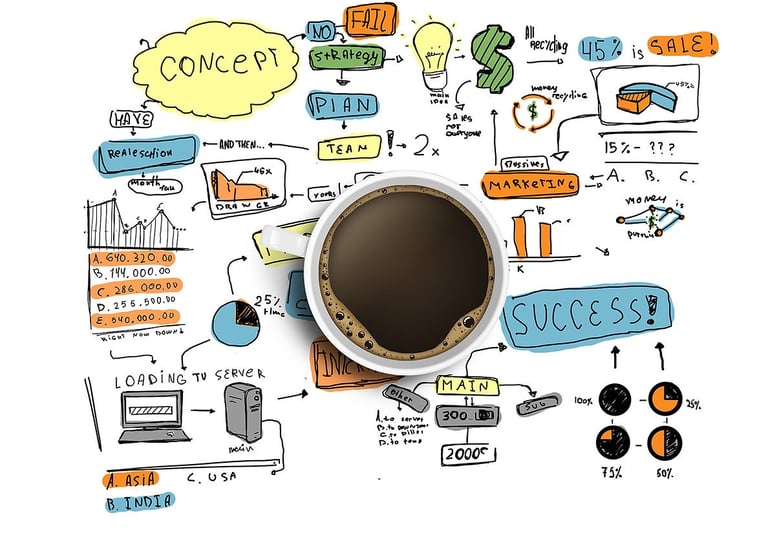 FAIL
NO
CONCEPT
STRAtEGY
All
Recycling
45% is SALE!
main
idea
money
recycling
45%
PlAN
HAVE
SALES
not
everyone
AND THEN...
TEAM ! 2x
15% - ???
MARKETING
A. B. C.
46x
YOURS
money is
A. 640.320.00
B. 144.000.00
C. 286.000.00
D. 255.500.00
E. 540.000.00
RIGHT NOW DOWN!
K
25%
time
SUCCESS!
LOADING TV SERVER
MAIN
Other
SUB
300.
2000c
100%
25%
75%
50%
main
A. ASiA
C. USA
B. INDIA